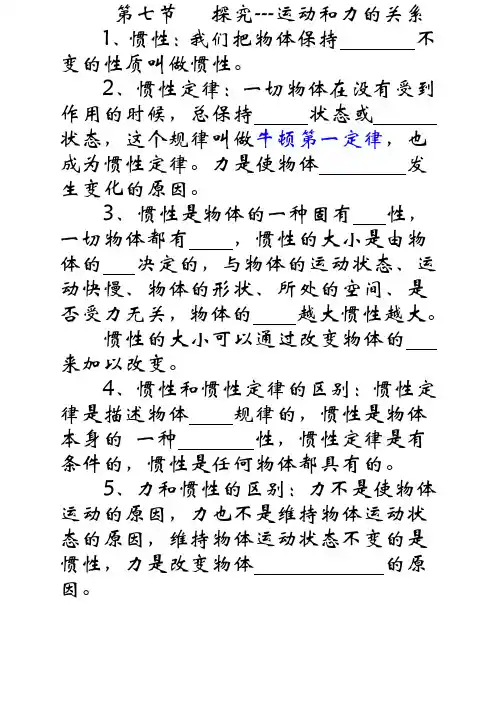 第七节 探究---运动和力的关系
1、惯性：我们把物体保持________不
变的性质叫做惯性。
2、惯性定律：一切物体在没有受到
作用的时候，总保持______状态或_______
状态，这个规律叫做牛顿第一定律，也
成为惯性定律。力是使物体_________发
生变化的原因。
3、惯性是物体的一种固有___性，
一切物体都有____，惯性的大小是由物
体的___决定的，与物体的运动状态、运
动快慢、物体的形状、所处的空间、是
否受力无关，物体的____越大惯性越大。
惯性的大小可以通过改变物体的___
来加以改变。
4、惯性和惯性定律的区别：惯性定
律是描述物体____规律的，惯性是物体
本身的 一种________性，惯性定律是有
条件的，惯性是任何物体都具有的。
5、力和惯性的区别：力不是使物体
运动的原因，力也不是维持物体运动状
态的原因，维持物体运动状态不变的是
惯性，力是改变物体_____________的原
因。